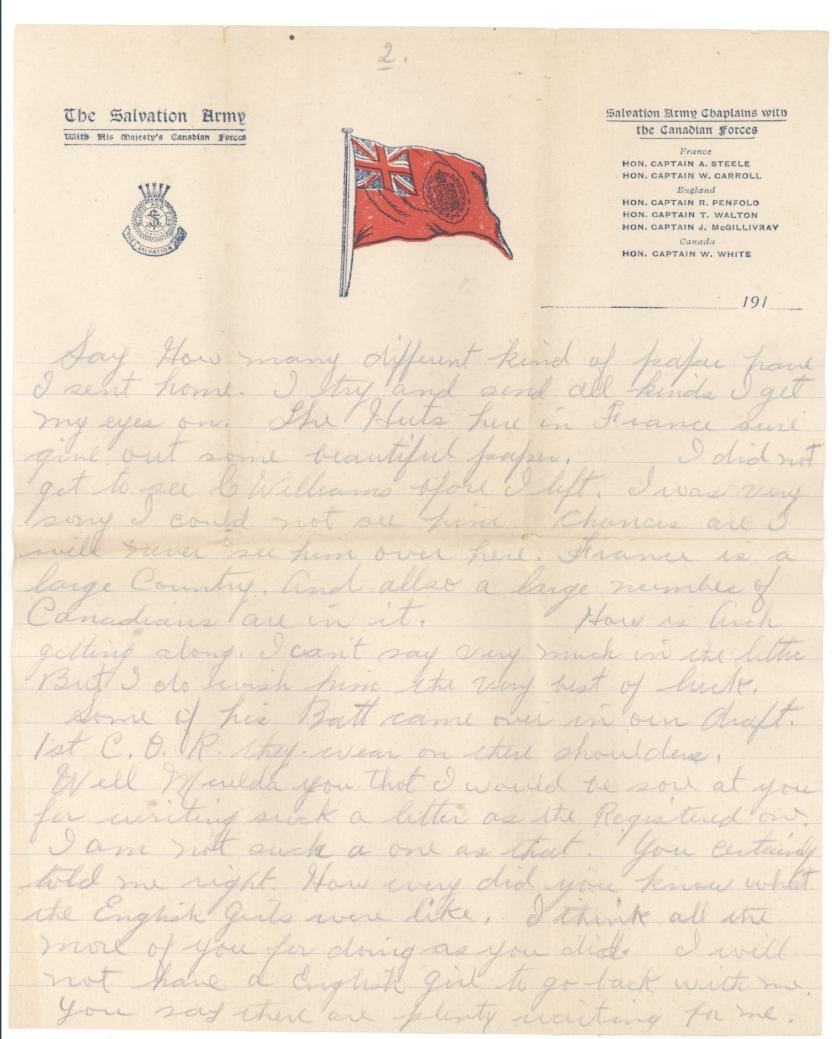 2.
The Salvation Army
With His Majesty's Canadian Forces
Salvation Army Chaplains with
the Canadian Forces
France
HON. CAPTAIN A. STEELE
HON. CAPTAIN W. CARROLL
England
HON. CAPTAIN R. PENFOLD
HON. CAPTAIN T. WALTON
HON. CAPTAIN J. McGILLIVRAY
Canada
HON. CAPTAIN W. WHITE
191
Say How many different kind of paper have
I sent home. I try and send all kinds I get
my eyes on. The Huts here in France sure
give out some beautiful paper. I did not
get to see C Williams bfore I left. I was very
sorry I could not see him. Chances are I
will never see him over here. France is a
large Country. And allso a large number of
Canadians are in it. How is Arch
getting along. I can't say very much in the letter
But I do wish him the very best of luck.
Some of his Batt came over in our draft.
1st C. O. R. they wear on there shoulders.
Well you that I would be sore at you
for writing such a letter as the Registered one.
I am not such a one as that. You certainly
told me right. How every did you know what
the English Girls were like. I think all the
more of you for doing as you did. I will
not have a English girl to go back with me.
You say there are plenty waiting for me.